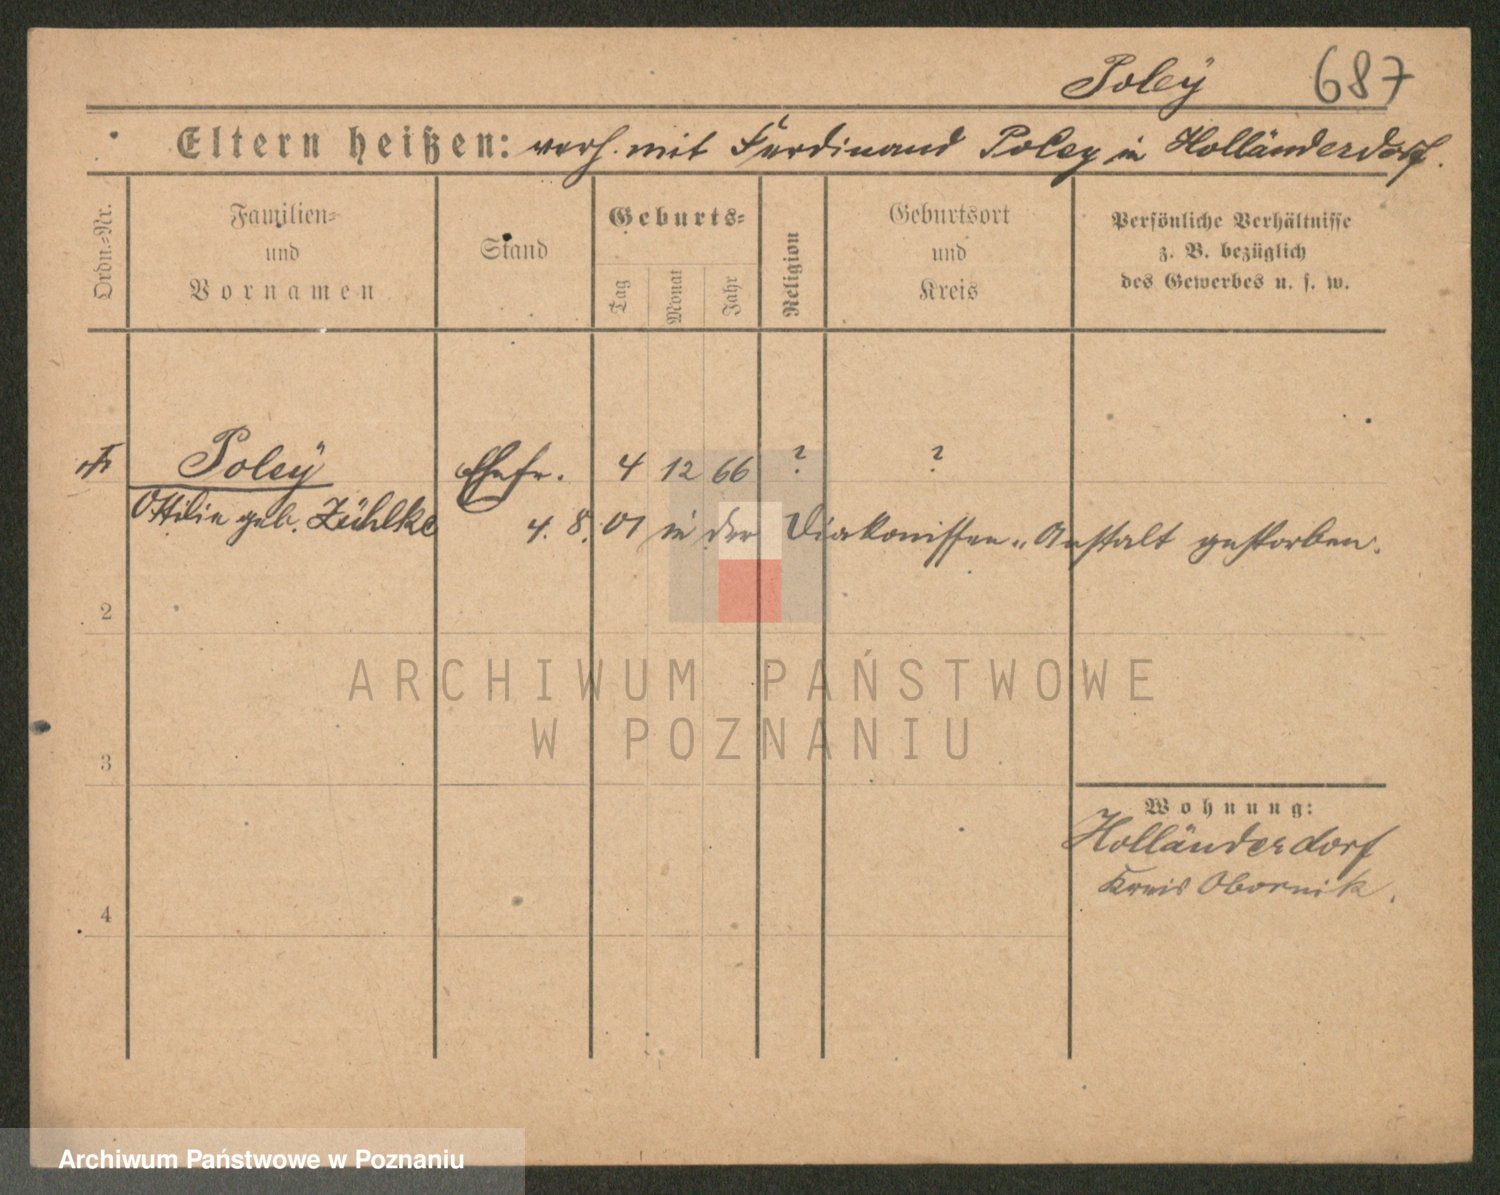 Poleÿ 687
Eltern heißen: verh. mit Ferdinand Poley in Holländerdorf.
Ordn.-Nr.
Familien-
und
Vornamen
Stand
Geburts-
Tag
Monat
Jahr
Religion
Geburtsort
und
Kreis
Persönliche Verhältnisse
z. B. bezüglich
des Gewerbes u. s. w.
Poleÿ Ehefr. 4 12 66 ? ?
Ottilie geb. Zühlke 4. 8. 01 in der Diakonissen-Anstalt gestorben.
2
3
4
Wohnung:
Holländerdorf
Kreis Obornik.
ARCHIWUM PAŃSTWOWE
W POZNANIU
Archiwum Państwowe w Poznaniu